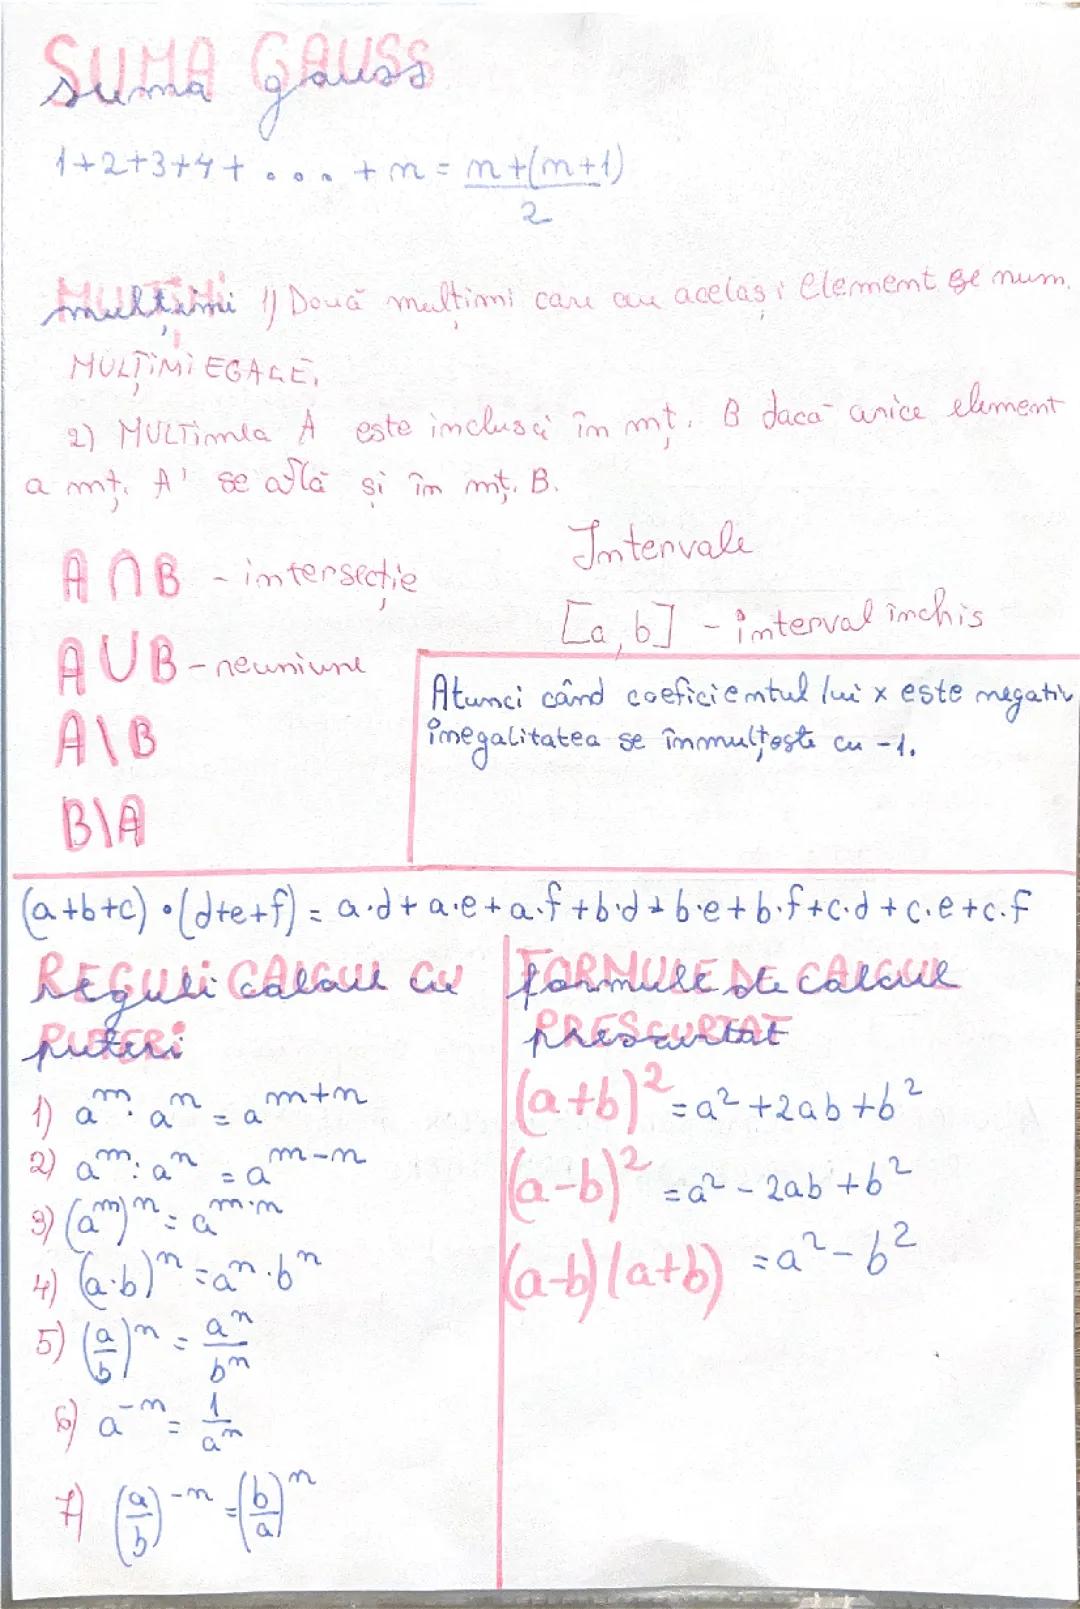 SUMA GAUSS
suma gauss
1+2+3+4+...+n = n+(n+1)/2
MULȚIMI
mulțimi 1) Două mulțimi care au același element se num.
MULȚIMI EGALE.
2) MULTimea A este inclusă în mț. B dacă orice element
a mț. A' se află și în mț. B.
A∩B - intersecție
A∪B - reuniune
A\B
B\A
Intervale
[a,b] - interval închis
Atunci când coeficientul lui x este negativ
inegalitatea se înmulțește cu -1.
(a+b+c)·(d+e+f) = a·d+a·e+a·f+b·d+b·e+b·f+c·d+c·e+c·f
REGULI CALCUL CU
reguli calcul cu
PUTERI
puteri
1) a^m · a^n = a^(m+n)
2) a^m : a^n = a^(m-n)
3) (a^m)^n = a^(m·n)
4) (a·b)^n = a^n · b^n
5) (a/b)^n = a^n/b^n
6) a^-n = 1/a^n
7) (a/b)^-n = (b/a)^n
FORMULE DE CALCUL
formule de calcul
PRESCURTAT
prescurtat
(a+b)² = a² + 2ab + b²
(a-b)² = a² - 2ab + b²
(a-b)(a+b) = a² - b²